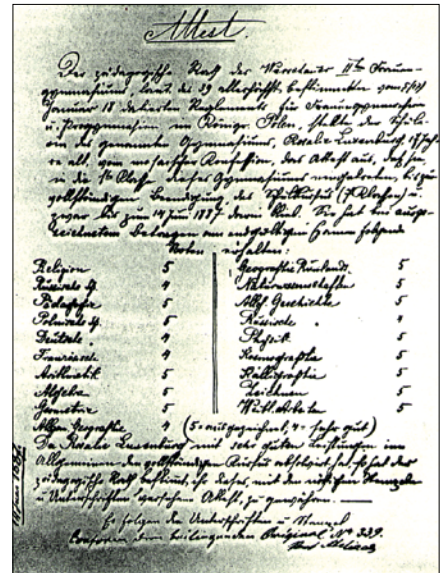 Attest.
Der pädagogische Rath des Warschauer IIten Frauen-
gymnasiums, laut des § 29 allerhöchst bestimmten vom
Januar 18 datierten Reglements für Frauengymnasien
u. Progymnasien im Königr. Polen, stellte der Schüle-
rin des genannten Gymnasiums, Rosalie Luxenburg, 17 Jah-
re alt, von mosaischer Konfession, das Attest aus, daß sie,
in die 1te Klasse dieses Gymnasiums eingetreten, bis zur
vollständigen Beendigung des Schulkursus (7 Klassen) u.
zwar bis zum 14 Juni 1887 darin blieb. Sie hat bei ausge-
zeichnetem Betragen am endgültigen Examen folgende
Noten erhalten:
Religion 5
Russische Sp. 4
Pädagogie 5
Polnische Sp. 5
Deutsche " 4
Französische 4
Arithmetik 5
Algebra 5
Geometrie 5
Allgem. Geografie 4
Geografie Russlands. 5
Naturwissenschaften 5
Allg. Geschichte 5
Russische " 4
Physik 5
Kosmografie 5
Kalligrafie 5
Zeichnen 5
Weibl. Arbeiten 5
(5 = ausgezeichnet, 4 = sehr gut)
Da Rosalie Luxenburg mit sehr guten Leistungen im
Allgemeinen den vollständigen Kursus absolvirt hat, so hat der
pädagogische Rath bestimmt, ihr dieses, mit den nöthigen Stempeln
u. Unterschriften versehene Attest, zu gewähren.
Es folgen die Unterschriften u. Stempel
Conform dem beiliegenden Original N° 339.